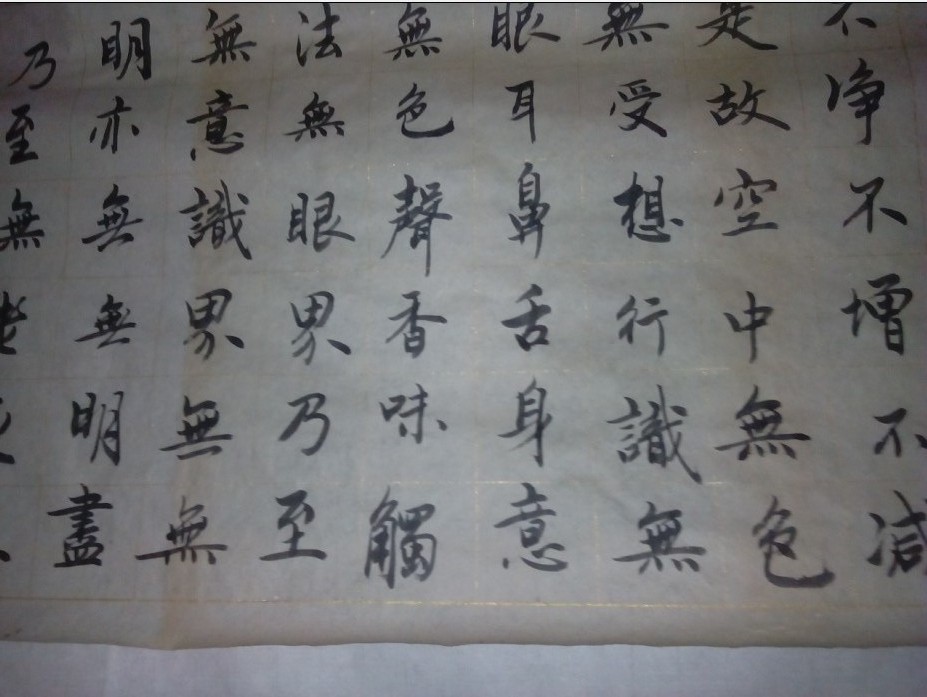 不净不增不减
是故空中無色
無受想行識無
眼耳鼻舌身意
無色聲香味觸
法無眼界乃至
無意識界無無
明亦無無明盡
乃至無老